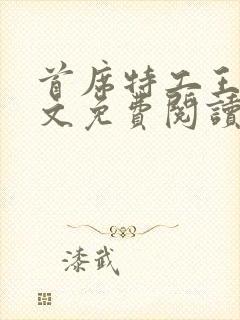 首席特工王
文免費閱讀
漆武